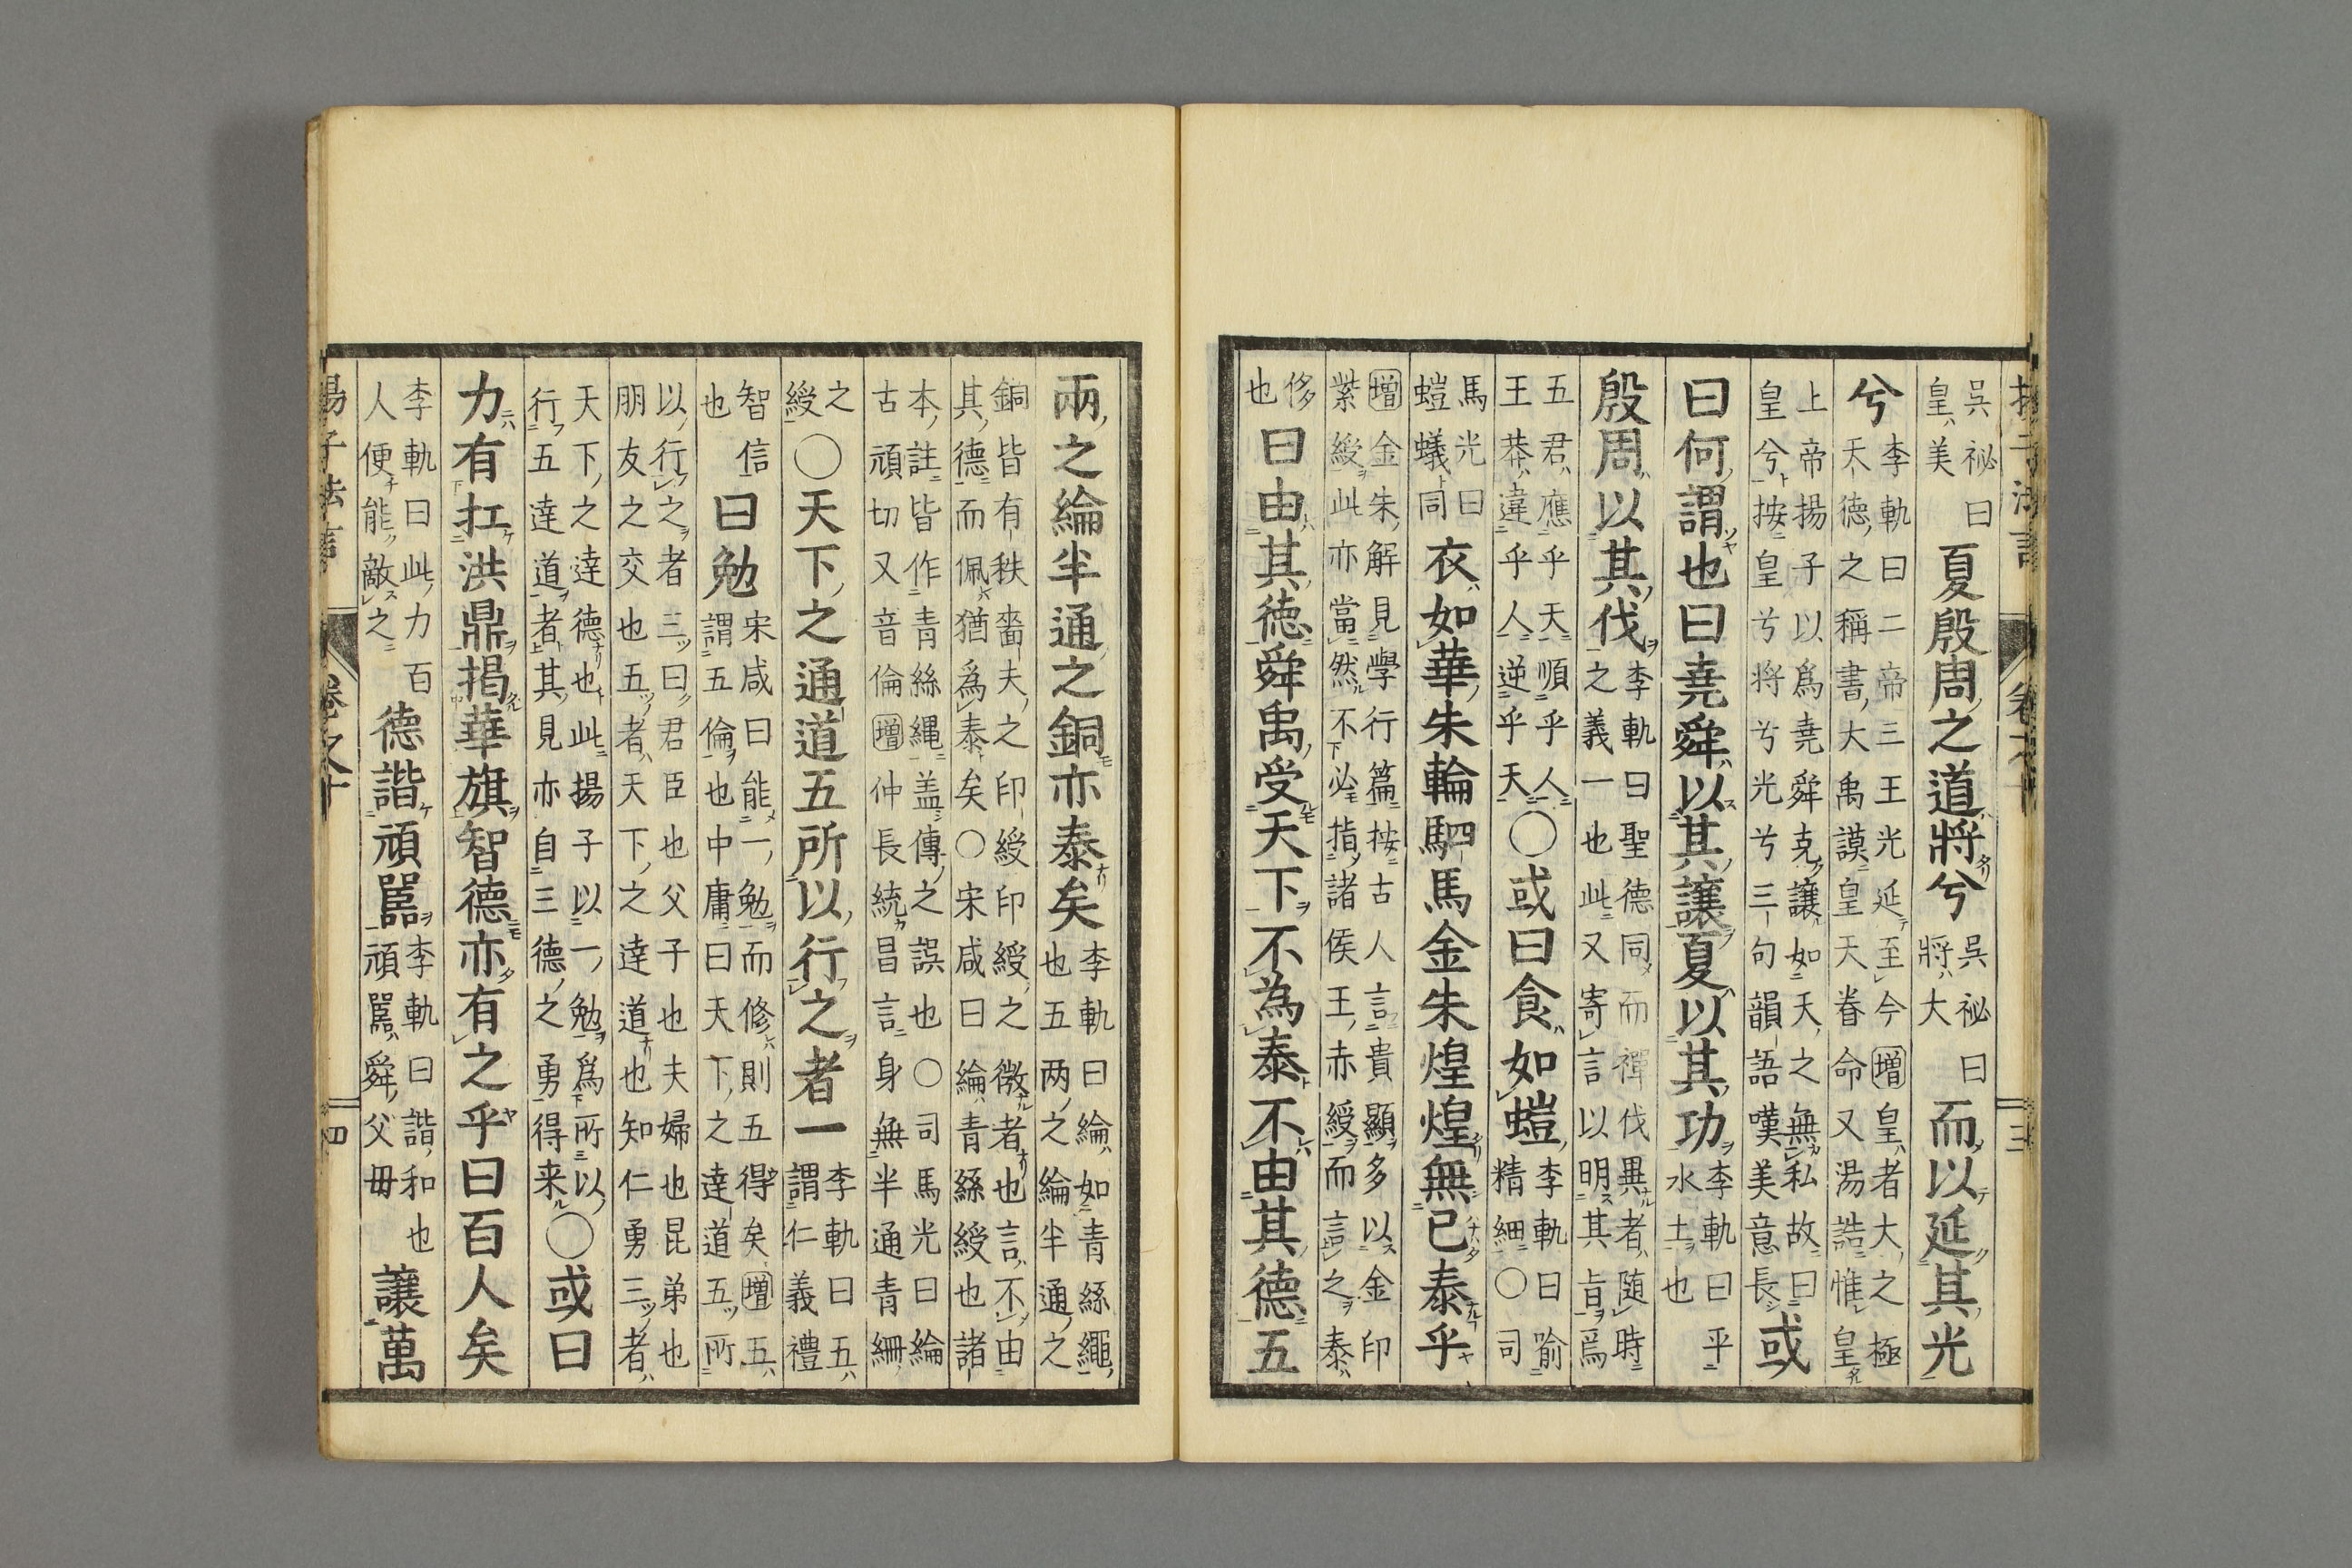 揚子法言　卷之十　三
吳祕曰皇美夏殷周之道將兮吳祕曰將大而以延其光
兮李軌曰二帝三王光延至今增皇者大之極天德之稱書大禹謨皇天眷命又湯誥惟皇
上帝揚子以爲堯舜克讓如天之無私故曰皇兮按皇兮將兮光兮三句韻語嘆美意長或
曰何謂也曰堯舜以其讓夏以其功李軌曰平水土也
殷周以其伐李軌曰聖德同而禪伐異者随時之義一也此又寄言以明其旨焉
五君應乎天順乎人王莽違乎人逆乎天○或曰食如螘李軌曰喻精細○司
馬光曰螘蟻同衣如華朱輪駟馬金朱煌煌無已泰乎
增金朱解見學行篇按古人言貴顯多以金印紫綬此亦當然不必指諸侯王赤綬而言之泰
侈也曰由其德舜禹受天下不為泰不由其德五
兩之綸半通之銅亦泰矣李軌曰綸如青絲繩也五两之綸半通之
銅皆有秩嗇夫之印綬印綬之微者也言不由其德而佩猶為泰矣○宋咸曰綸青絲綬也諸
本註皆作青絲縄盖傳之誤也○司馬光曰綸古頑切又音倫增仲長統昌言身無半通青綸
之綬○天下之通道五所以行之者一李軌曰五謂仁義禮
智信也曰勉宋咸曰能一勉而修則五得矣增五謂五倫也中庸曰天下之達道五所
以行之者三曰君臣也父子也夫婦也昆弟也朋友之交也五者天下之達道也知仁勇三者
天下之達德也此揚子以一勉爲所以行五達道者其見亦自三德之勇得来○或曰
力有扛洪鼎揭華旗智德亦有之乎曰百人矣
李軌曰此力百人便能敵之德諧頑嚚李軌曰諧和也頑嚚舜父毋讓萬
揚子法言　卷之十　四